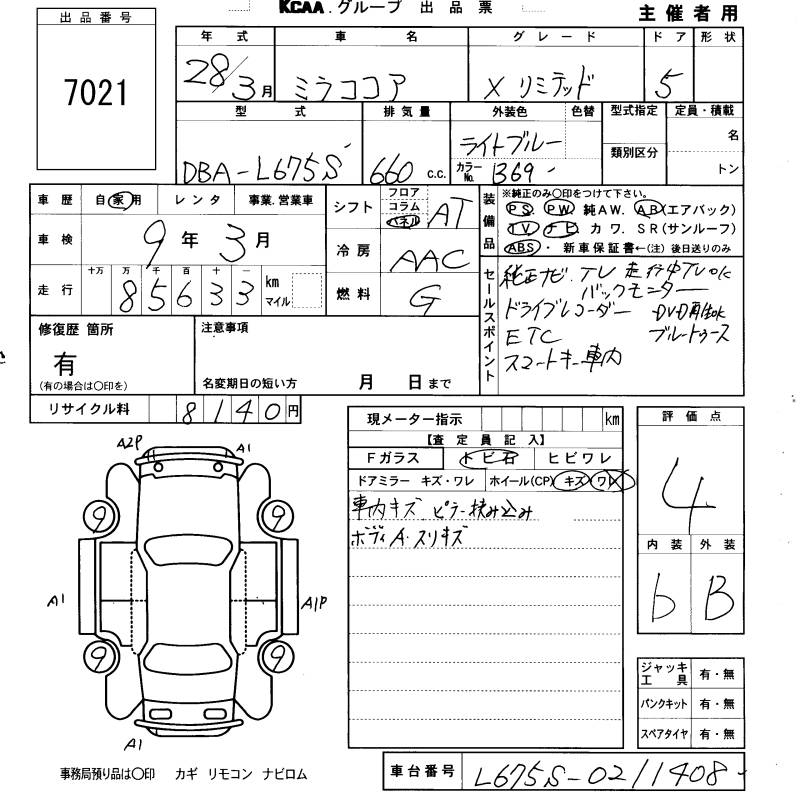 KCAA.グループ 出品票
主催者用
出品番号
7021
年式 車名 グレード ドア 形状
28/3月 ミラココア X リミテッド 5
型式 排気量 外装色 色替 型式指定 定員・積載
DBA-L675S 660 c.c. ライトブルー
カラーNo. B69
類別区分
名
トン
車歴 自家用 レンタ 事業.営業車
車検 9年 3月
走行 十万 万 千 百 十 一
85633 km
マイル
シフト フロア コラム パネル AT
冷房 AAC
燃料 G
装備品
※純正のみ〇印をつけて下さい。
PS. PW. 純AW. AB(エアバック)
TV. ナビ. カワ. SR(サンルーフ)
ABS ・ 新車保証書←(注) 後日送りのみ
セールスポイント
純正ナビ.TV 走行中TVok
バックモニター
ドライブレコーダー DVD再生ok
ETC ブルートゥース
スマートキー車内
修復歴 箇所
有
(有の場合は〇印を)
注意事項
名変期日の短い方 月 日まで
リサイクル料 8140円
現メーター指示 km
【査定員記入】
Fガラス トビ石 ヒビワレ
ドアミラー キズ・ワレ ホイール(CP) キズ ワレ
車内キズ ピラー挟み込み
ボディA.スリキズ
評価点
4
内装 外装
b B
A2P A1
9 9
A1 A1P
9 9
A1
ジャッキ工具 有・無
パンクキット 有・無
スペアタイヤ 有・無
事務局預り品は〇印 カギ リモコン ナビロム
車台番号 L675S-0211408